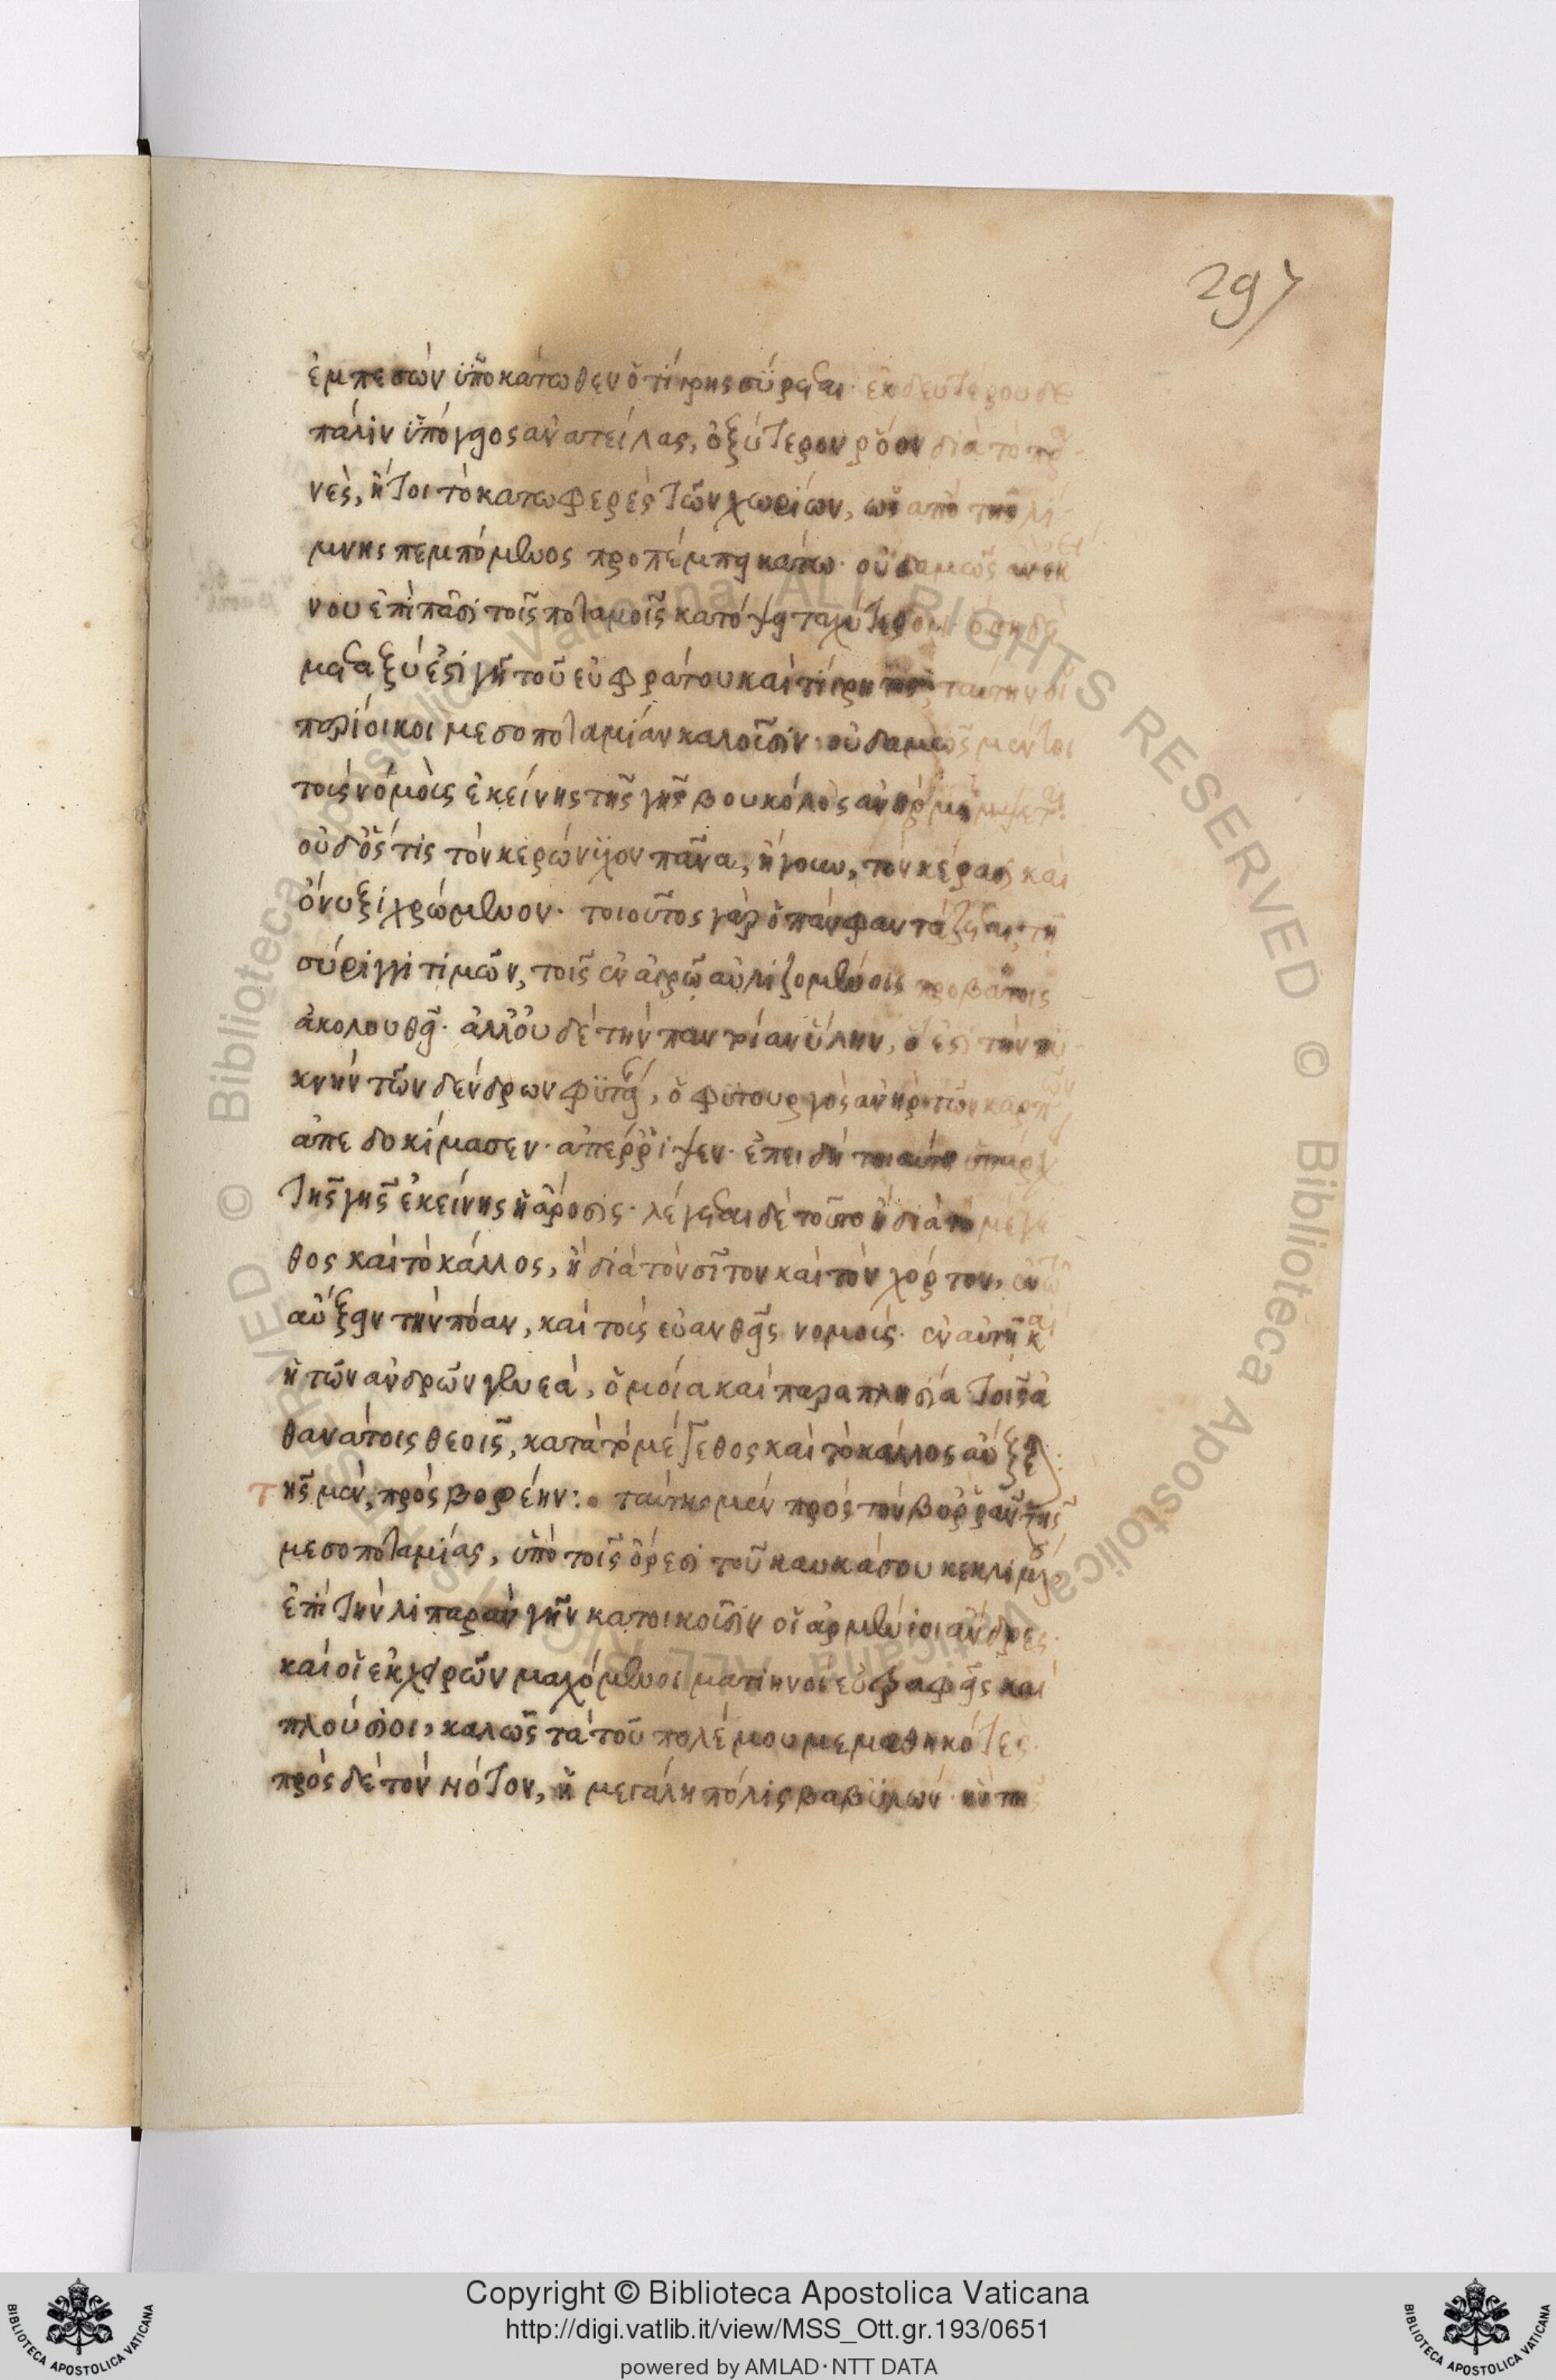 297
ἐμπεσὼν ὑποκάτωθεν ὁ τίγρης σύρεται· ἐκ δευτέρου δὲ
πάλιν ὑπόγειος ἀνατείλας, ὀξύτερον ῥόον διὰ τὸ πρα
νὲς, ἤτοι τὸ κατωφερὲς τῶν χωρίων, ὡς ἀπὸ τῆς λί
μνης πεμπόμενος προπέμπει κάτω· οὐδαμῶς
νου ἐπὶ πᾶσι τοῖς ποταμοῖς κατόψει ταχύτερον· ὅση δὲ
μεταξύ ἐστι γῆ τοῦ εὐφράτου καὶ τίγρητος, ταύτην οἱ
περίοικοι μεσοποταμίαν καλοῦσιν· οὐδαμῶς μέντοι
τοὺς νόμοὺς ἐκείνης τῆς γῆς βουκόλος ἀνὴρ μέμψεται
οὐδ' ὅς τις τὸν κερώνυχον πᾶνα, ἤγουν, τὸν κέρασι καὶ
ὄνυξι χρώμενον· τοιοῦτος γὰρ ὁ πὰν φαντάζεται· τῇ
σύριγγι τιμῶν, τοῖς ἐν ἀγρῷ αὐλιζομένοις προβάτοις
ἀκολουθεῖ· ἀλλ' οὐδὲ τὴν παντοίαν ὕλην, ὅ ἐστι τὴν πυ
κνὴν τῶν δένδρων φυτείαν, ὁ φυτουργὸς ἀνὴρ τῶν καρπῶν
ἀπεδοκίμασεν· ἀπέρριψεν· ἐπειδὴ τοιαύτη ὑπάρχει
τῆς γῆς ἐκείνης ἡ ἄροσις· λέγεται δὲ τοῦτο ἢ διὰ τὸ μέγε
θος καὶ τὸ κάλλος, ἢ διὰ τὸν σῖτον καὶ τὸν χόρτον, ἐν τῷ
αὔξειν τὴν πόαν, καὶ τοὺς εὐανθεῖς νομούς· ἐν αὐτῇ καὶ
ἡ τῶν ἀνδρῶν γενεά, ὁμοία καὶ παραπλησία τοῖς ἀ
θανάτοις θεοῖς, κατὰ τὸ μέγεθος καὶ τὸ κάλλος αὔξει:
Τῆς μὲν, πρὸς βορέην: ταύτης μὲν πρὸς τὸν βορρᾶν τῆς
μεσοποταμίας, ὑπὸ τοῖς ὄρεσι τοῦ καυκάσου κεκλιμένοι
ἐπὶ τὴν λιπαρὰν γῆν κατοικοῦσιν οἱ ἀρμένιοι ἄνδρες·
καὶ οἱ ἐκ χειρῶν μαχόμενοι ματιηνοὶ εὐβαφεῖς καὶ
πλούσιοι, καλῶς τὰ τοῦ πολέμου μεμαθηκότες·
πρὸς δὲ τὸν νότον, ἡ μεγάλη πόλις βαβυλών· ἣν τῆς
Copyright © Biblioteca Apostolica Vaticana
http://digi.vatlib.it/view/MSS_Ott.gr.193/0651
powered by AMLAD·NTT DATA